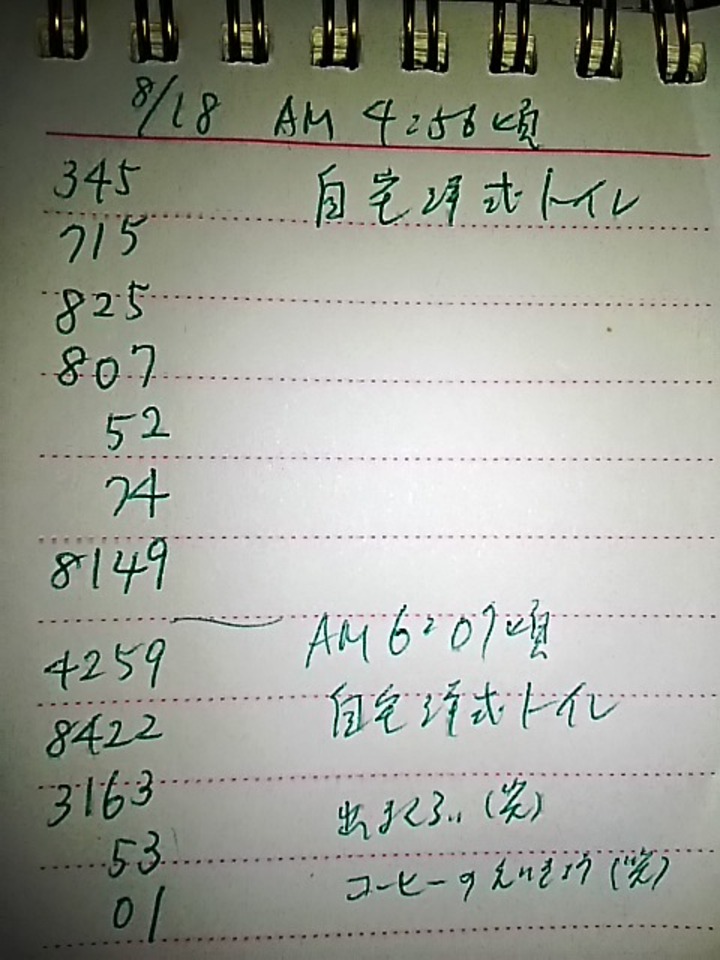 8/18 AM 4:56頃
345 自宅洋式トイレ
715
825
807
52
74
8149
AM 6:07頃
4259
自宅洋式トイレ
8422
3163 出まくる.. (笑)
53
コーヒーのえいきょう (笑)
01